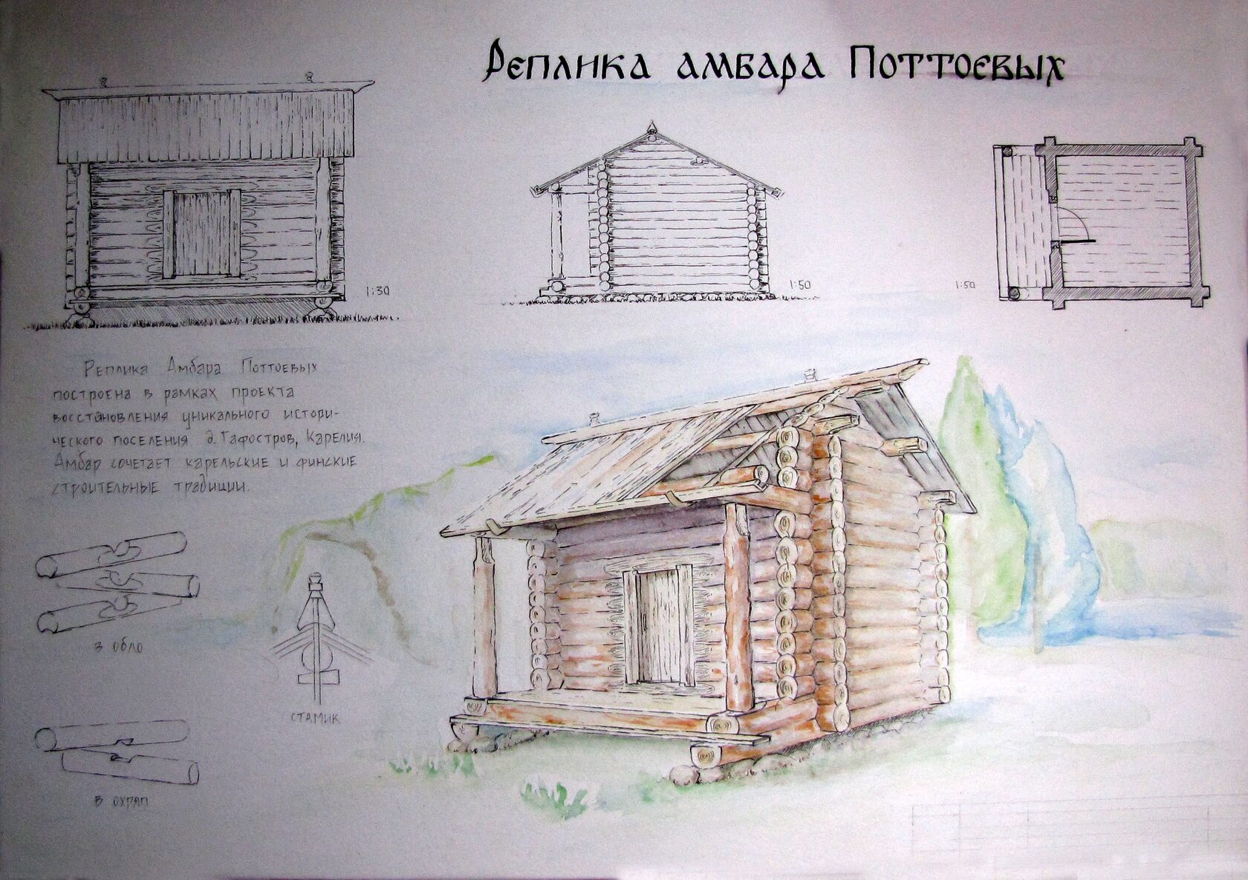 Реплика амбара Поттоевых
1:30
1:50
1:50
Реплика Амбара Поттоевых
построена в рамках проекта
восстановления уникального истори-
ческого поселения д. Гафостров, Карелия.
Амбар сочетает карельские и финские
строительные традиции.
В обло
стамик
В охряп